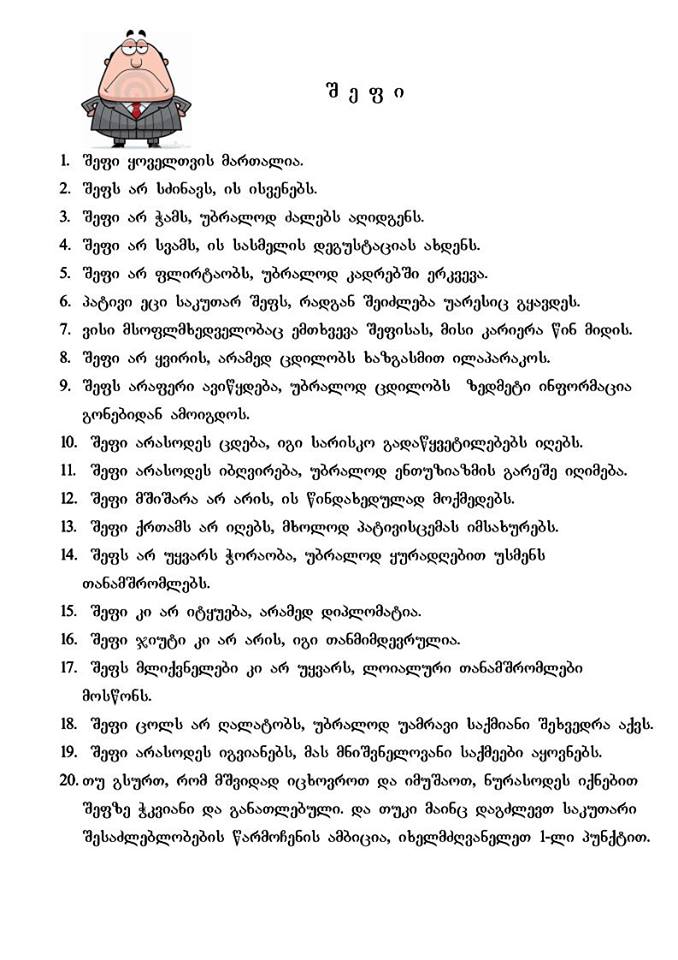 შ ე ფ ი
1. შეფი ყოველთვის მართალია.
2. შეფს არ სძინავს, ის ისვენებს.
3. შეფი არ ჭამს, უბრალოდ ძალებს აღიდგენს.
4. შეფი არ სვამს, ის სასმელის დეგუსტაციას ახდენს.
5. შეფი არ ფლირტაობს, უბრალოდ კადრებში ერკვევა.
6. პატივი ეცი საკუთარ შეფს, რადგან შეიძლება უარესიც გყავდეს.
7. ვისი მსოფლმხედველობაც ემთხვევა შეფისას, მისი კარიერა წინ მიდის.
8. შეფი არ ყვირის, არამედ ცდილობს ხაზგასმით ილაპარაკოს.
9. შეფს არაფერი ავიწყდება, უბრალოდ ცდილობს ზედმეტი ინფორმაცია
გონებიდან ამოიგდოს.
10. შეფი არასოდეს ცდება, იგი სარისკო გადაწყვეტილებებს იღებს.
11. შეფი არასოდეს იბღვირება, უბრალოდ ენთუზიაზმის გარეშე იღიმება.
12. შეფი მშიშარა არ არის, ის წინდახედულად მოქმედებს.
13. შეფი ქრთამს არ იღებს, მხოლოდ პატივისცემას იმსახურებს.
14. შეფს არ უყვარს ჭორაობა, უბრალოდ ყურადღებით უსმენს
თანამშრომლებს.
15. შეფი კი არ იტყუება, არამედ დიპლომატია.
16. შეფი ჯიუტი კი არ არის, იგი თანმიმდევრულია.
17. შეფს მლიქვნელები კი არ უყვარს, ლოიალური თანამშრომლები
მოსწონს.
18. შეფი ცოლს არ ღალატობს, უბრალოდ უამრავი საქმიანი შეხვედრა აქვს.
19. შეფი არასოდეს იგვიანებს, მას მნიშვნელოვანი საქმეები აყოვნებს.
20. თუ გსურთ, რომ მშვიდად იცხოვროთ და იმუშაოთ, ნურასოდეს იქნებით
შეფზე ჭკვიანი და განათლებული. და თუკი მაინც დაგძლევთ საკუთარი
შესაძლებლობების წარმოჩენის ამბიცია, იხელმძღვანელეთ 1-ლი პუნქტით.